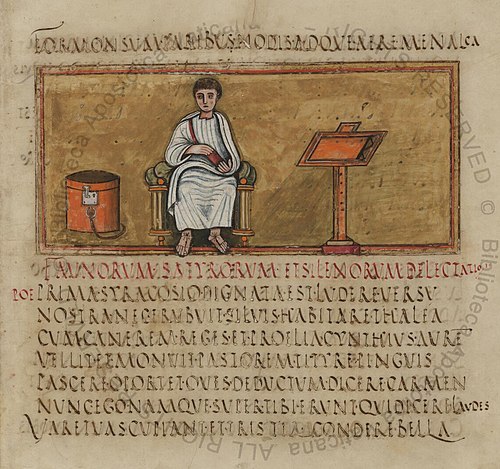 FORMONSVM PARIBVS NODIS ADQVE AERE MENALCA
FAVNORVM SATYRORVM ET SILENORVM DELECTATIO
POE PRIMA SYRACOSIO DIGNATA EST LVDERE VERSV
NOSTRA NEC ERVBVIT SILVIS HABITARE THALEA
CVM CANEREM REGES ET PROELIA CYNTHIVS AVRE
VELLIT ET MONVIT PASTOREM TITYRE PINGVIS
PASCERE OPORTET OVES DEDVCTVM DICERE CARMEN
NVNC EGO NAMQVE SVPER TIBI ERVNT QVI DICERE LAVDES
VARE TVAS CVPIANT ET TRISTIA CONDERE BELLA
© Biblioteca Apostolica Vaticana ALL RIGHTS RESERVED